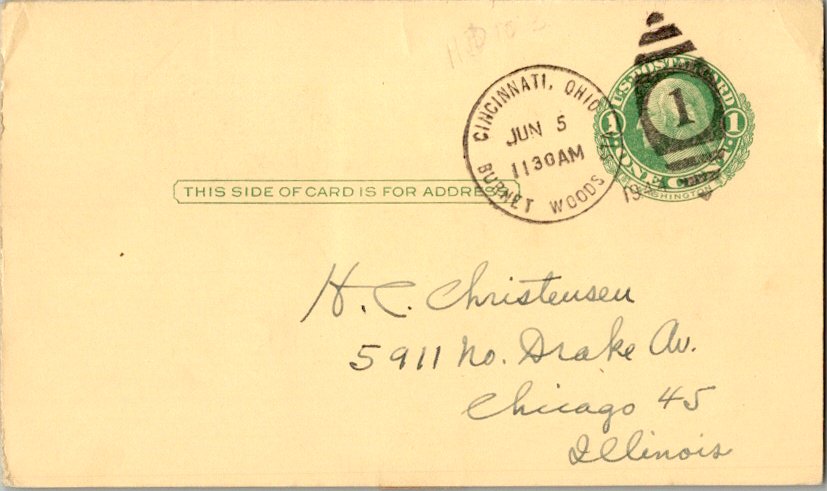 CINCINNATI, OHIO
JUN 5
1130AM
BURNET WOODS
19
1
U.S. POSTAL CARD
1 1
ONE CENT
WASHINGTON
THIS SIDE OF CARD IS FOR ADDRESS
H. C. Christensen
5911 No. Drake Av.
Chicago 45
Illinois